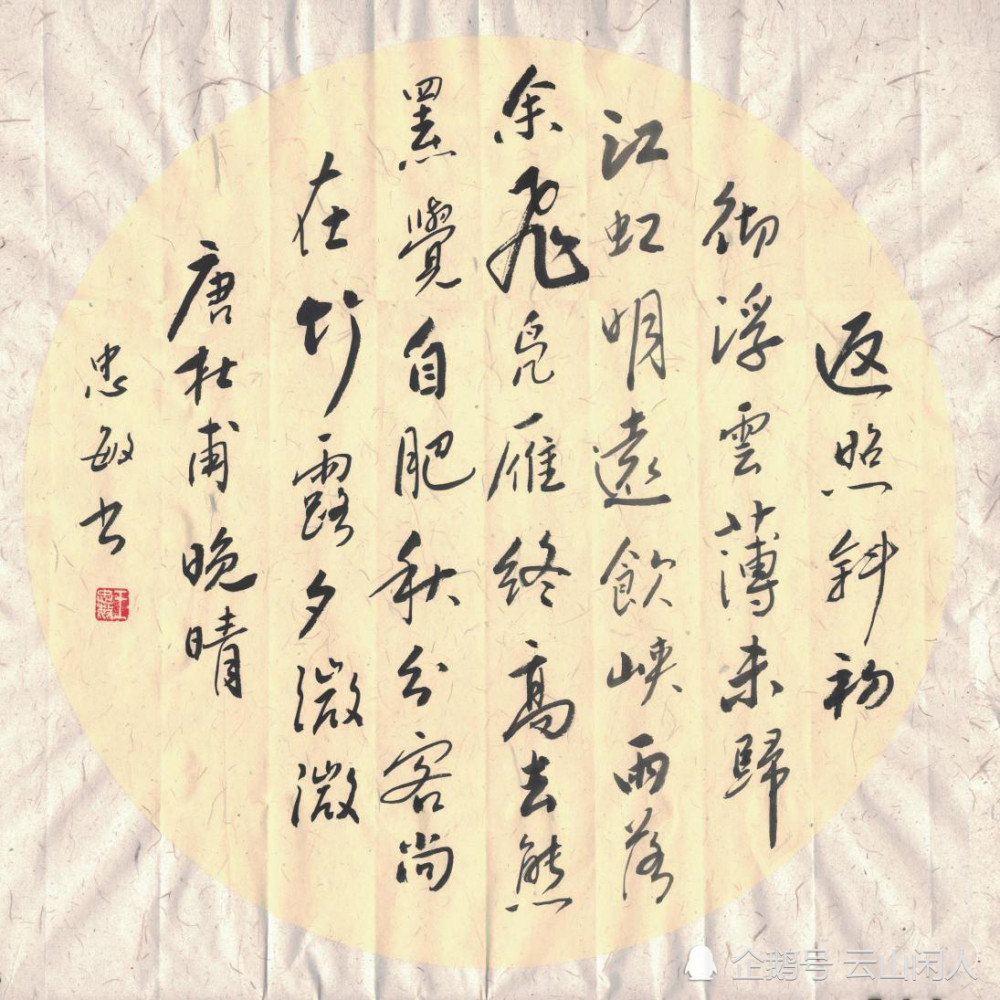 返照斜初
彻浮雲薄未歸
江虹明遠飲峽雨落
余飛凫雁終高去熊
罴覺自肥秋分客尚
在竹露夕微微
唐杜甫晚晴
忠敏书
王忠敏
企鹅号 云山闲人